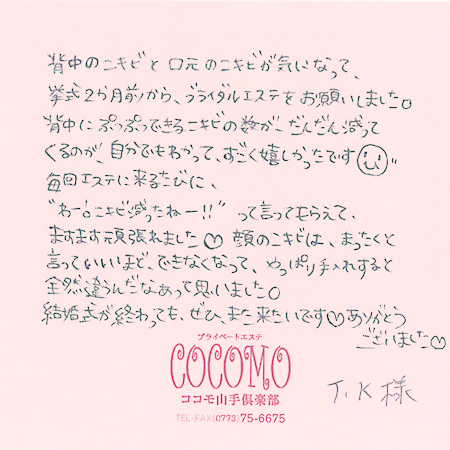 背中のニキビと口元のニキビが気になって、
挙式2か月前から、ブライダルエステをお願いしました。
背中にぷつぷつできるニキビの数が、だんだん減って
くるのが、自分でもわかって、すごく嬉しかったです
毎回エステに来るたびに、
"わー!ニキビ減ったねー!!" って言ってもらえて、
ますます頑張れました♡ 顔のニキビは、まったくと
言っていいほど、できなくなって、やっぱり手入れすると
全然違うんだなあって思いました。
結婚式が終わっても、ぜひ、また来たいです♡ありがとう
ございました♡
プライベートエステ
COCOMO
ココモ山手倶楽部
TEL・FAX(0773)75-6675
T.K 様